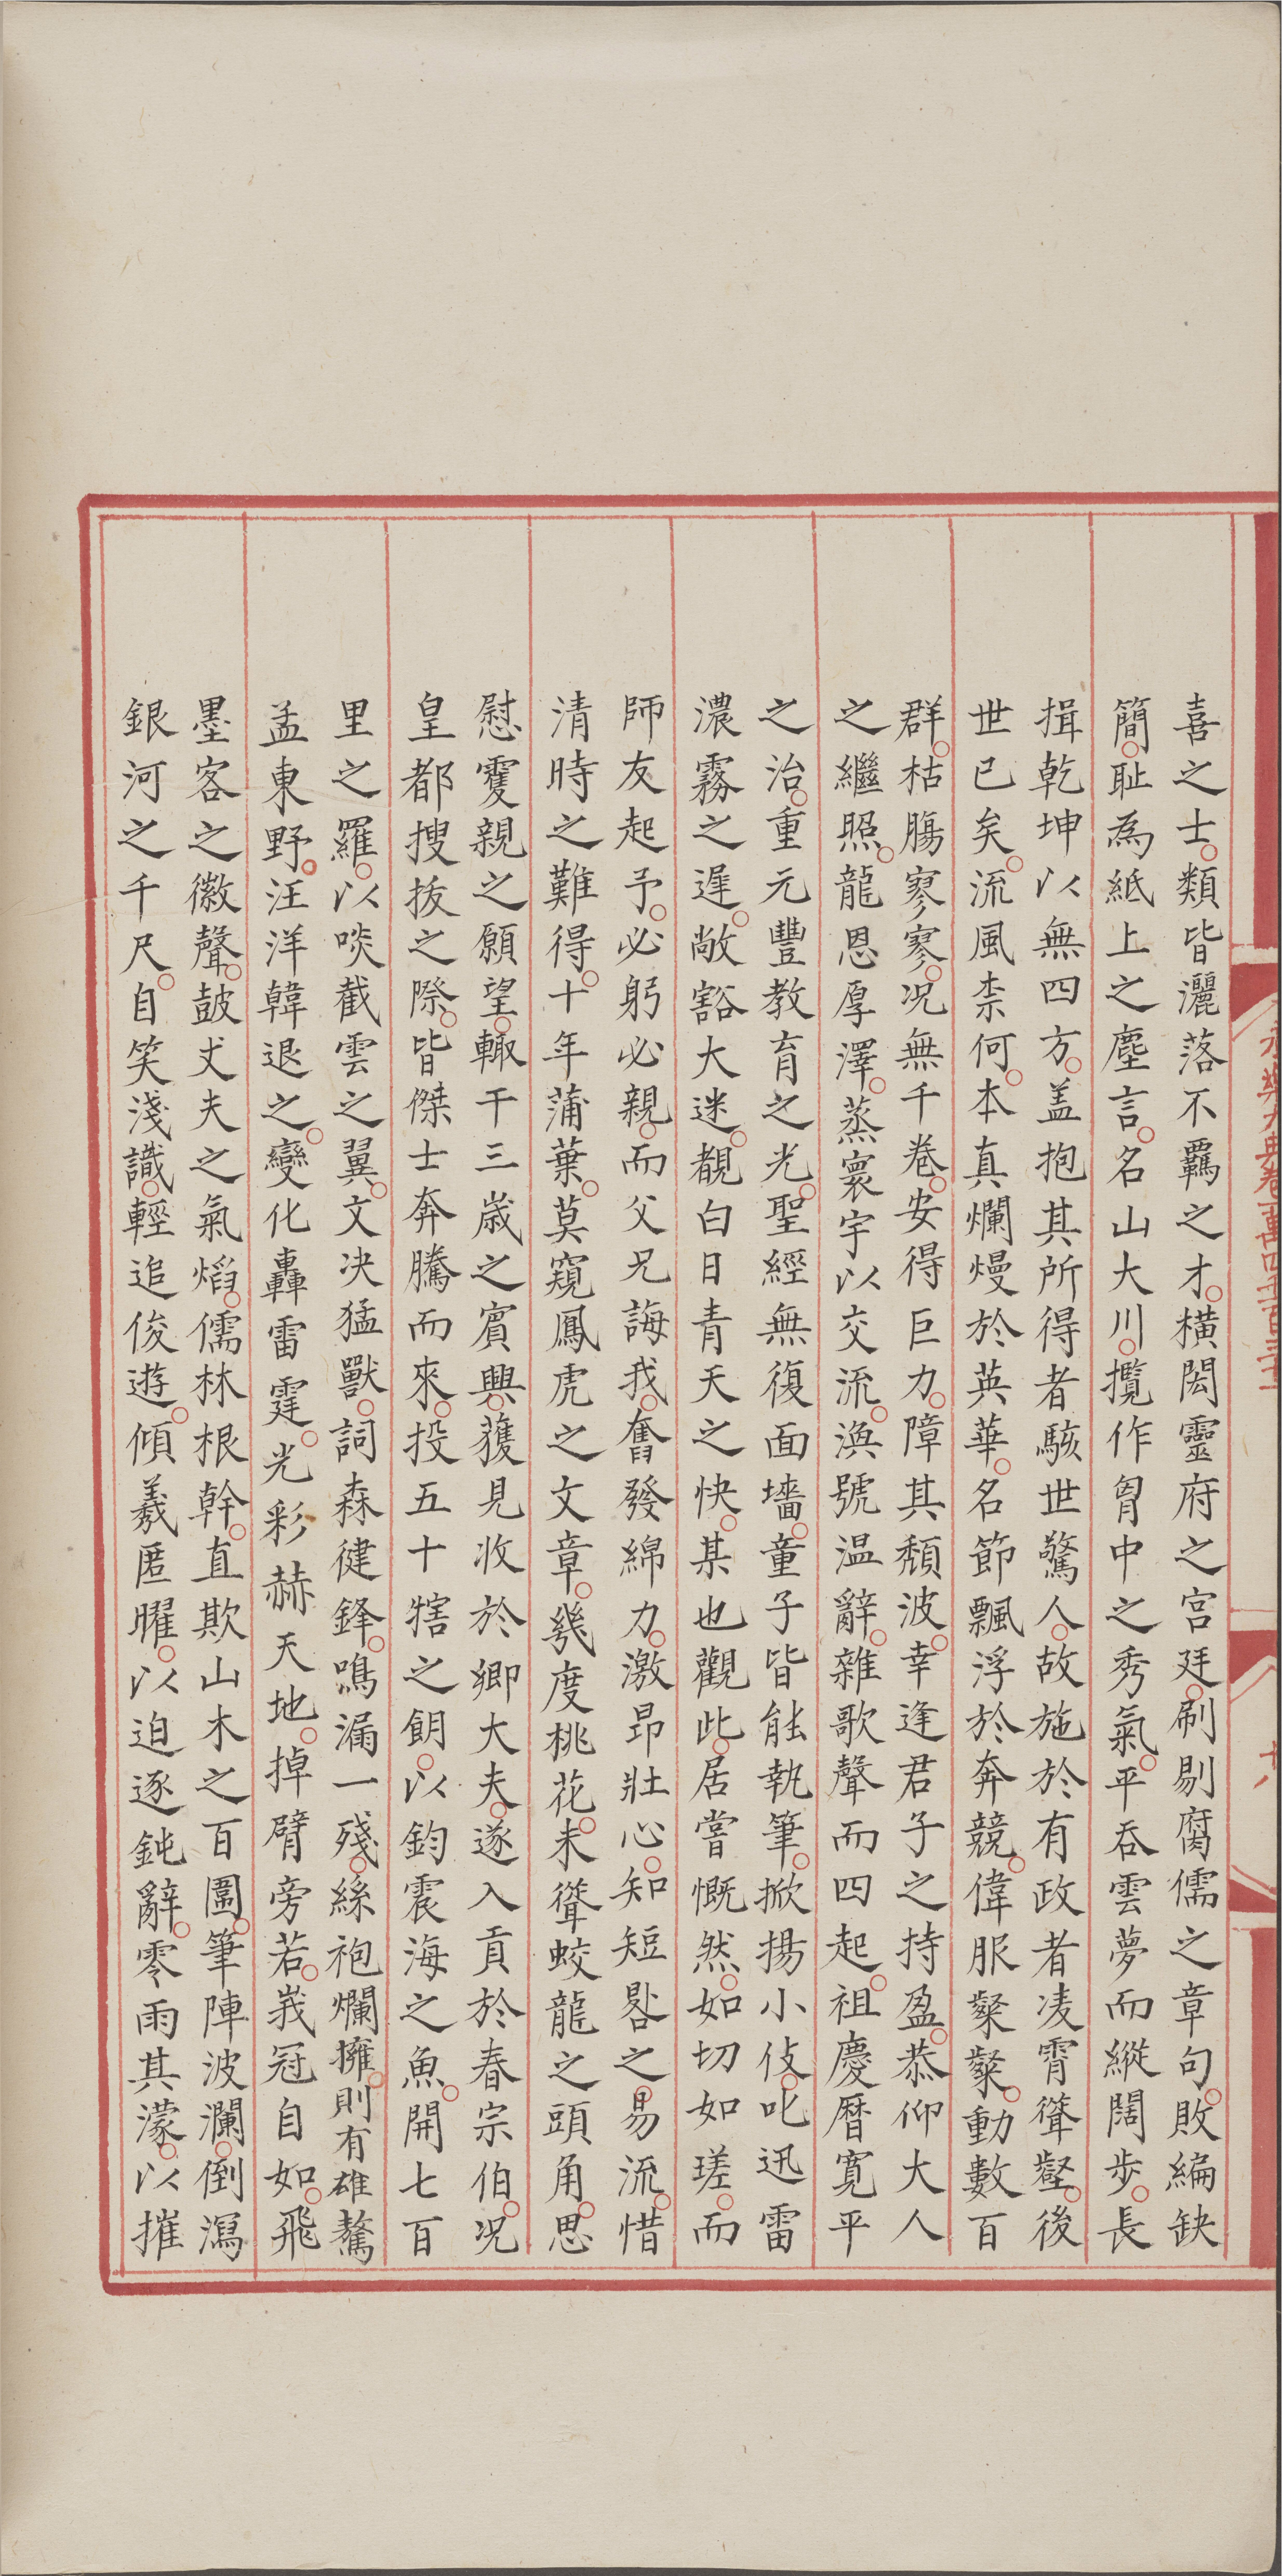 喜之士。類皆灑落不羈之才。橫閎靈府之宮廷。刷剔腐儒之章句。敗編缺
簡。耻為紙上之塵言。名山大川。攬作胷中之秀氣。平吞雲夢而縱闊步。長
揖乾坤以無四方。盖抱其所得者駭世驚人。故施於有政者凌霄聳壑。後
世已矣。流風柰何。本真爛熳於英華。名節飄浮於奔競。偉服粲粲。動數百
群。枯膓寥寥。况無千卷。安得巨力。障其頹波。幸逢君子之持盈。恭仰大人
之繼照。龍恩厚澤。蒸寰宇以交流。渙號温辭。雜歌聲而四起。祖慶曆寬平
之治。重元豐教育之光。聖經無復面墻。童子皆能執筆。掀揚小伎。叱迅雷
濃霧之遲。敞豁大迷。覩白日青天之快。某也觀此。居嘗慨然。如切如瑳。而
師友起予。必躬必親。而父兄誨我。奮發綿力。激昂壯心。知短晷之易流。惜
清時之難得。十年蒲葉。莫窺鳳虎之文章。幾度桃花。未聳蛟龍之頭角。思
慰䨥親之願望。輙干三嵗之賓興。獲見收於鄉大夫。遂入貢於春宗伯。况
皇都搜抜之際。皆傑士奔騰而來。投五十犗之餌。以鈞震海之魚。開七百
里之羅。以啖截雲之翼。文决猛獸。詞森健鋒。鳴漏一殘。絲袍爛擁。則有雄驁
孟東野。汪洋韓退之。變化轟雷霆。光彩赫天地。掉臂旁若。峩冠自如。飛
墨客之徽聲。皷丈夫之氣熖。儒林根幹。直欺山木之百圍。筆陣波瀾。倒瀉
銀河之千尺。自笑淺識。輕追俊遊。傾羲匿曜。以迫逐鈍辭。零雨其濛。以摧